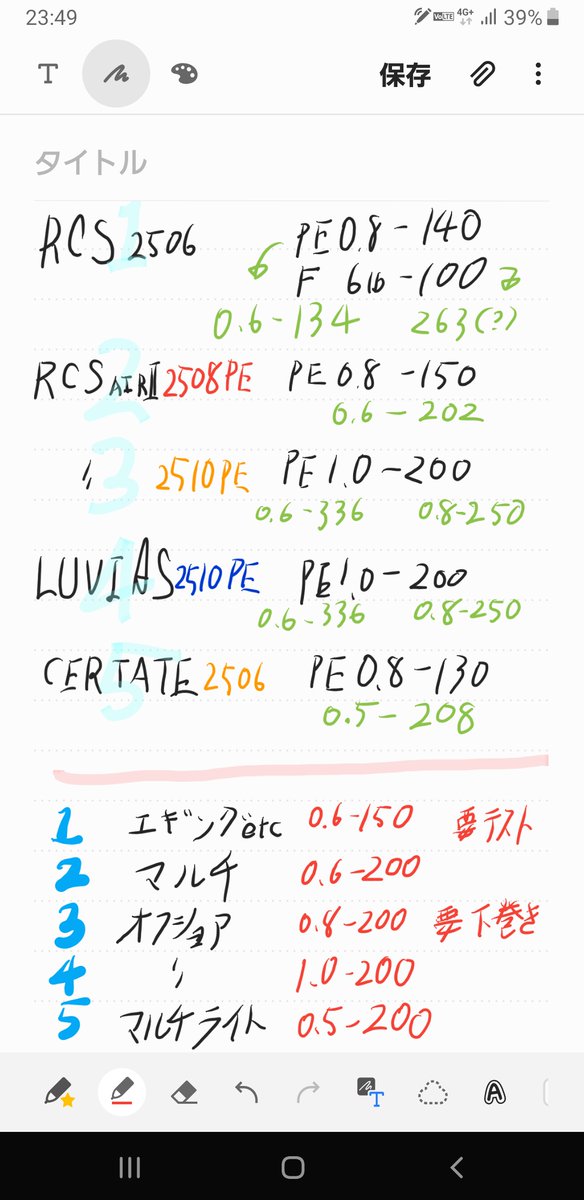 23:49 VoLTE 4G+ 39%
T 保存
タイトル
1
RCS 2506 PE 0.8-140
F 6lb-100
0.6-134 263(?)
2
RCS AIRⅡ 2508PE PE 0.8-150
0.6-202
3
〃 2510PE PE 1.0-200
0.6-336 0.8-250
4
LUVIAS 2510PE PE 1.0-200
0.6-336 0.8-250
5
CERTATE 2506 PE 0.8-130
0.5-208
1 エギングetc 0.6-150 要テスト
2 マルチ 0.6-200
3 オフショア 0.8-200 要下巻き
4 〃 1.0-200
5 マルチライト 0.5-200
T A